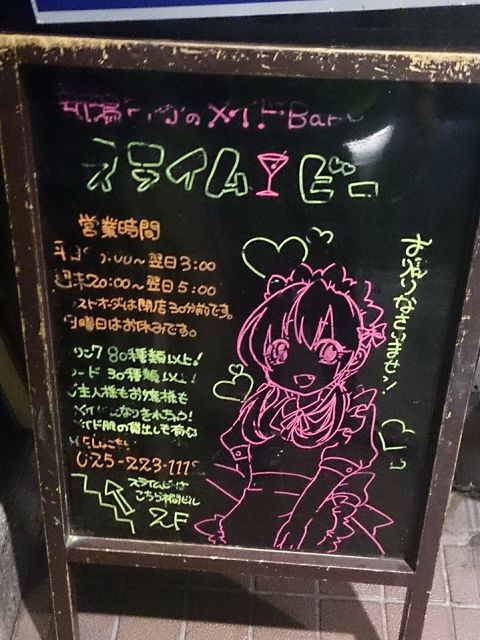 のメイドBar
スライム ビー
営業時間
00～翌日3:00
末20:00～翌日5:00
ストオーダーは閉店30分前です。
曜日はお休みです。
リンク 80種類以上!
ード 30種類以上!
ご主人様もお嬢様も
メイドになりきれちゃう!
メイド服の貸出しも有
025-223-111
スライムビーは
こちら本間ビル
2F
お帰りなさいませ!